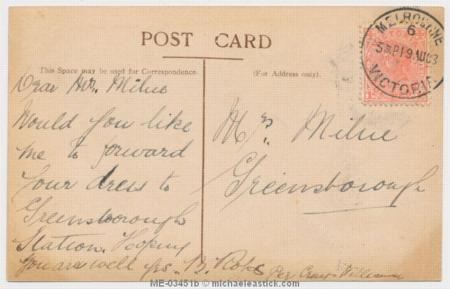 POST CARD
This Space may be used for Correspondence.
(For Address only).
MELBOURNE
6
VICTORIA
Dear Mrs. Milne
Would you like
me to forward
your dress to
Greensborough
Station. Hoping
you are well yrs. B.
Mrs. Milne
Greensborough
Per
ME-03451b © michaeleastick.com